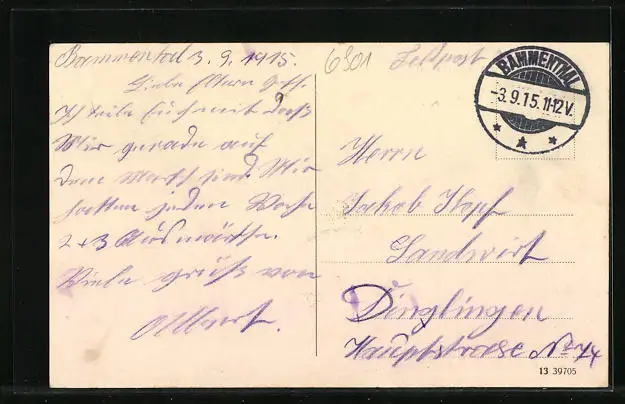 Bammental 3.9.1915.
Liebe Eltern Gesch.
Ich teile Euch mit daß
Wir gerade auf
dem Marsch sind. Wir
hatten jeden Woche
2+3 Ausmärsche.
Viele Grüß von
Albert.
6901
Feldpost
BAMMENTHAL
-3.9.15.11-12V.
Herrn
Jakob Kopf
Landwirt
Dinglingen
Hauptstrasse No 74
13 39705